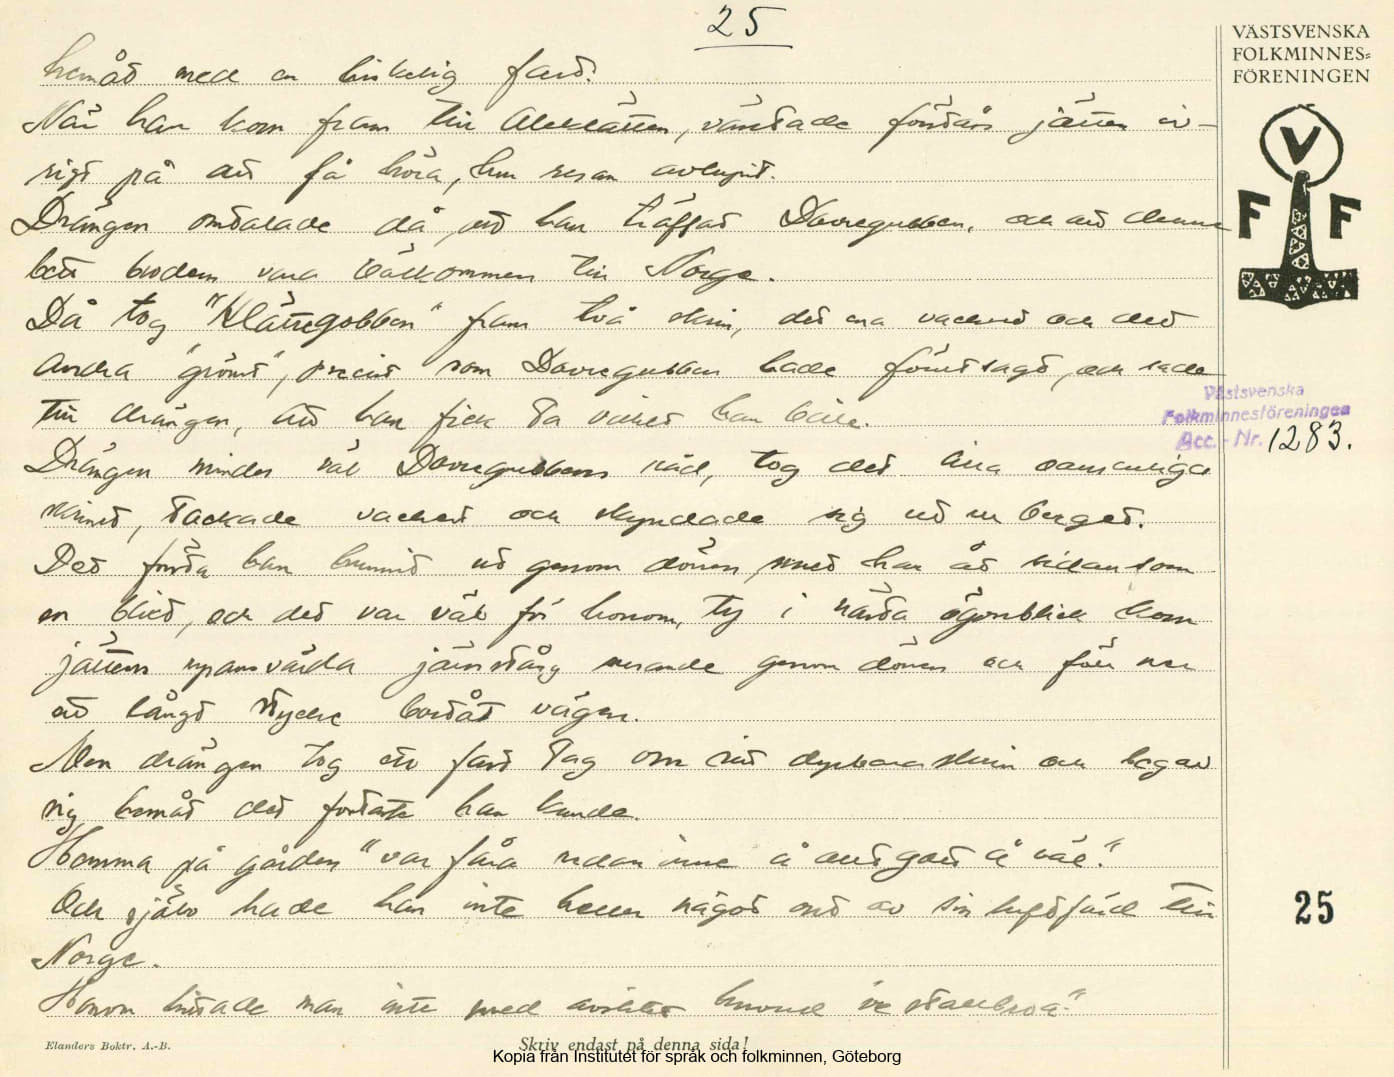 25
VÄSTSVENSKA
FOLKMINNES=
FÖRENINGEN
V
F F
hemåt med en fart.
När han kom fram till Aleklätten, väntade förstås jätten iv-
rigt på att få höra, hur resan avlupit.
Drängen omtalade då att han träffat Dovregubben, och att denne
bett brodern vara välkommen till Norge.
Då tog "Klättegobben" fram två skinn, det ena vackert och det
andra "grömt", precist som Dovregubben hade förutsagt, och sade
till drängen, att han fick ta vilket han ville.
Drängen mindes väl Dovregubbens råd, tog det lilla oansenliga
skinnet, tackade vackert och skyndade sig ut ur berget.
Det första han hunnit ut genom dörren, han åt sidan som
en blixt, och det var väl för honom, ty i nästa ögonblick kom
jättens järnstång genom dörren och föll ner
ett långt stycke bortåt vägen.
Men drängen tog ett fast tag om sitt dyrbara skinn och begav
sig hemåt det fortaste han kunde.
Hemma på gården "var fåra redan inne å allt gott å väl."
Och själv hade han inte heller något ont av sin luftfärd till
Norge.
Honom man inte med
Västsvenska
Folkminnesföreningen
Acc. - Nr. 1283.
25
Elanders Boktr. A.-B.
Skriv endast på denna sida!
Kopia från Institutet för språk och folkminnen, Göteborg